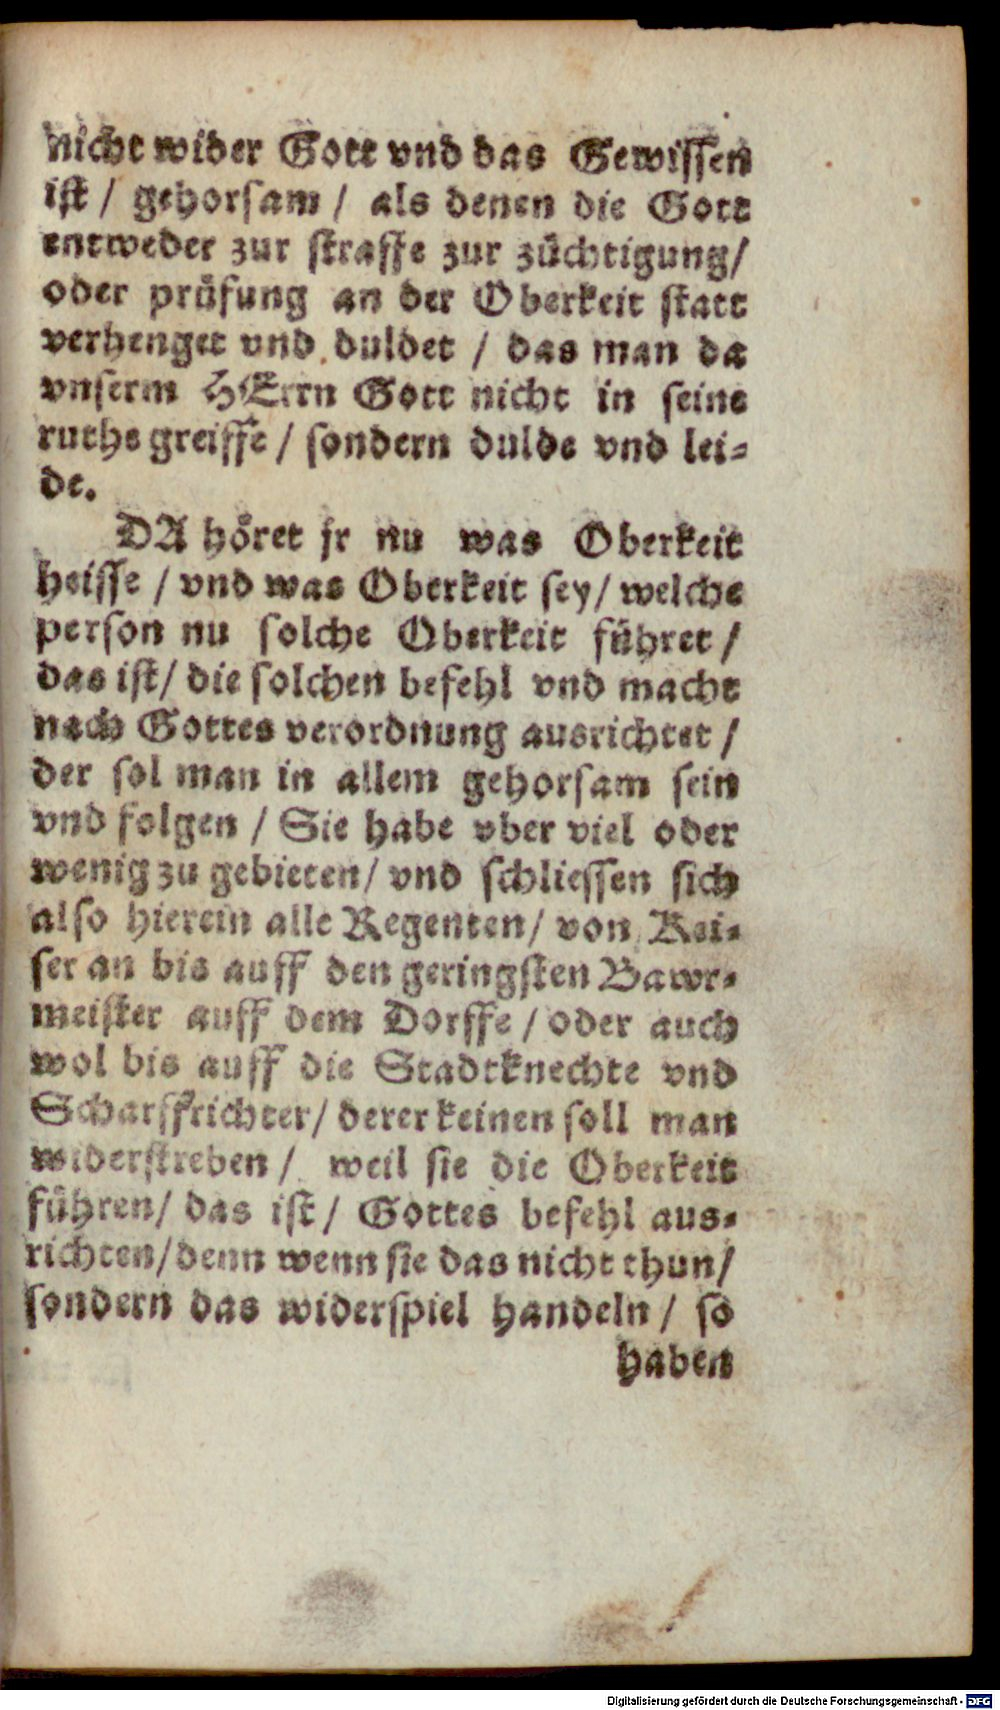 nicht wider Gott vnd das Gewissen
ist / gehorsam / als denen die Gott
entweder zur straffe zur züchtigung/
oder prüfung an der Oberkeit statt
verhenget vnd duldet / das man da
vnserm HErrn Gott nicht in seine
ruthe greiffe / sondern dulde vnd lei-
de.
DA höret jr nu was Oberkeit
heisse / vnd was Oberkeit sey/ welche
person nu solche Oberkeit führet /
das ist/ die solchen befehl vnd macht
nach Gottes verordnung ausrichtet /
der sol man in allem gehorsam sein
vnd folgen / Sie habe vber viel oder
wenig zu gebieten/ vnd schliessen sich
also hierein alle Regenten/ von Kei-
ser an bis auff den geringsten Bawr-
meister auff dem Dorffe / oder auch
wol bis auff die Stadtknechte vnd
Scharffrichter/ derer keinen soll man
widerstreben / weil sie die Oberkeit
führen/ das ist / Gottes befehl aus-
richten/ denn wenn sie das nicht thun/
sondern das widerspiel handeln / so
haben
Digitalisierung gefördert durch die Deutsche Forschungsgemeinschaft - DFG